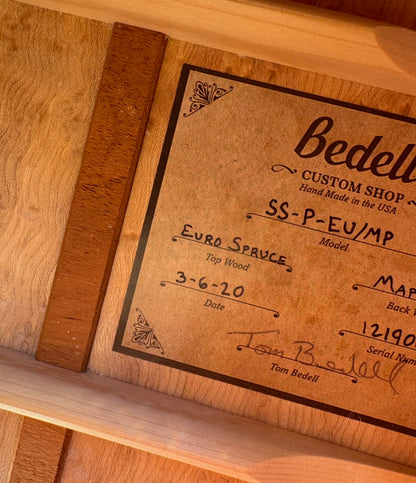 Bedell
CUSTOM SHOP
Hand Made in the USA
SS-P-EU/MP
Model
EURO SPRUCE
Top Wood
MAP
Back W
3-6-20
Date
12190
Serial Num
Tom Bedell
Tom Bedell